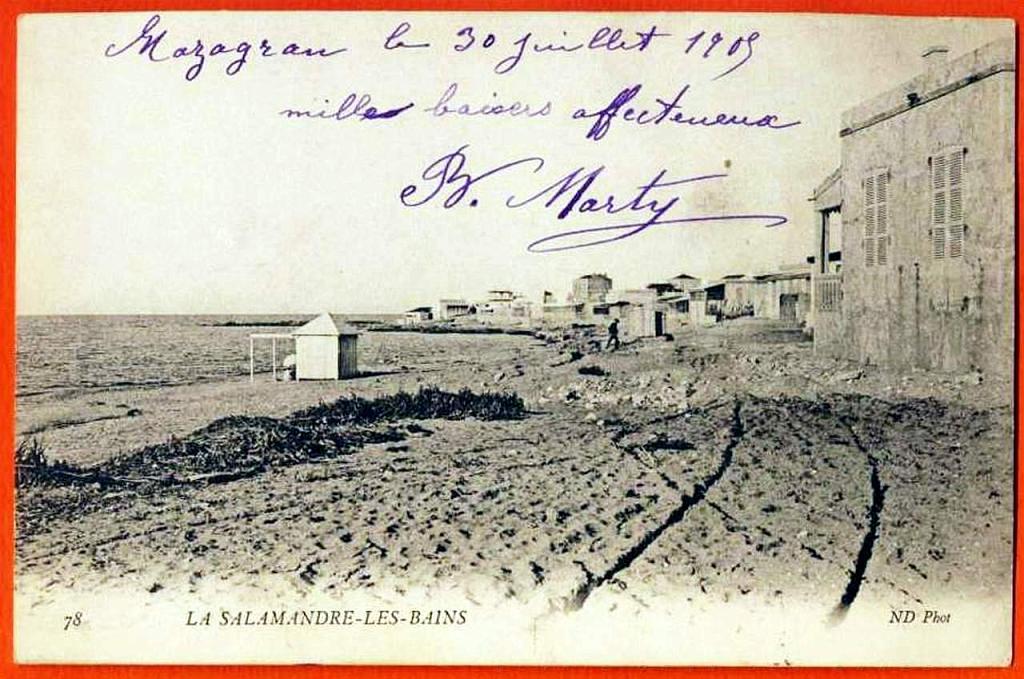 Mazagran le 30 juillet 1905
mille baisers affectueux
B. Marty
78 LA SALAMANDRE-LES-BAINS ND Phot